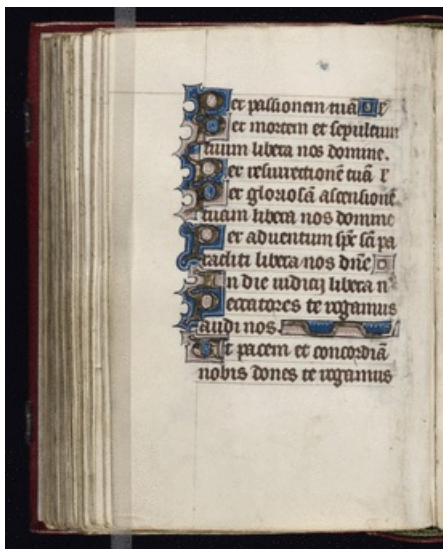 Per passionem tuā O l̄
Per mortem et sepultum
tuum libera nos domine.
Per resurrectionē tuā l̄
Per gloriosā ascensionē
tuam libera nos domine
Per adventum sp̄c sc̄i pa
racliti libera nos dn̄e
In die iudicij libera n̄
Peccatores te rogamus
audi nos.
Ut pacem et concordiā
nobis dones te rogamus